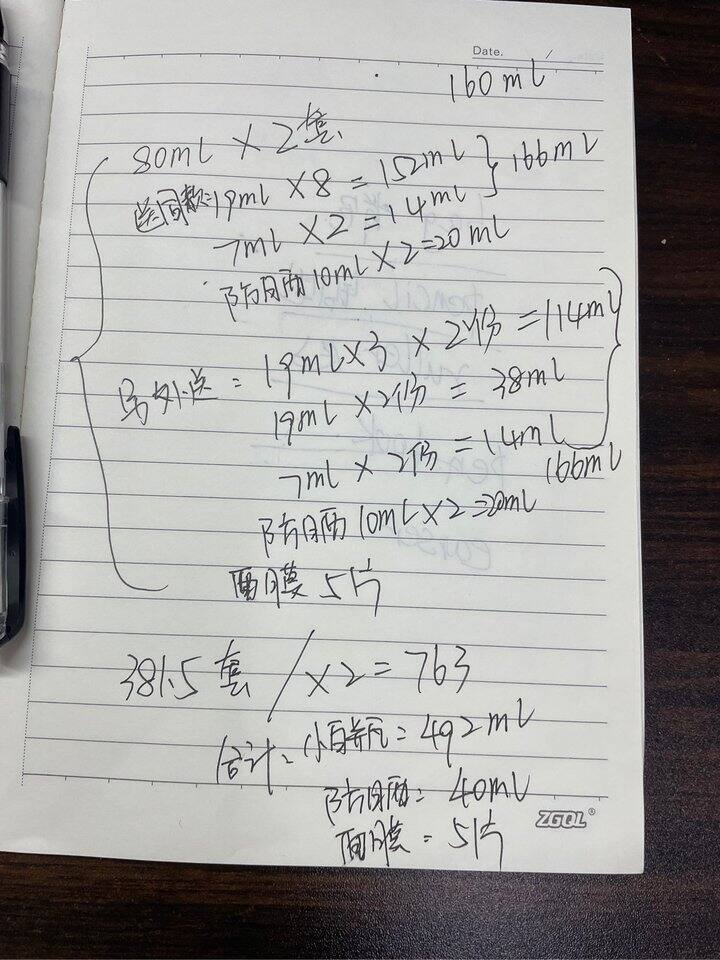 Date.
160ml
80ml × 2套
送同款=19ml × 8 = 152ml } 166ml
7ml × 2 = 14ml
防晒10ml × 2 = 20ml
另外送 = 19ml × 3 × 2份 = 114ml
19ml × 2份 = 38ml
7ml × 2份 = 14ml
166ml
防晒10ml × 2 = 20ml
面膜 5片
381.5 套 / × 2 = 763
合计: 小白瓶 = 492ml
防晒 = 40ml
面膜 = 5片
ZGQL®